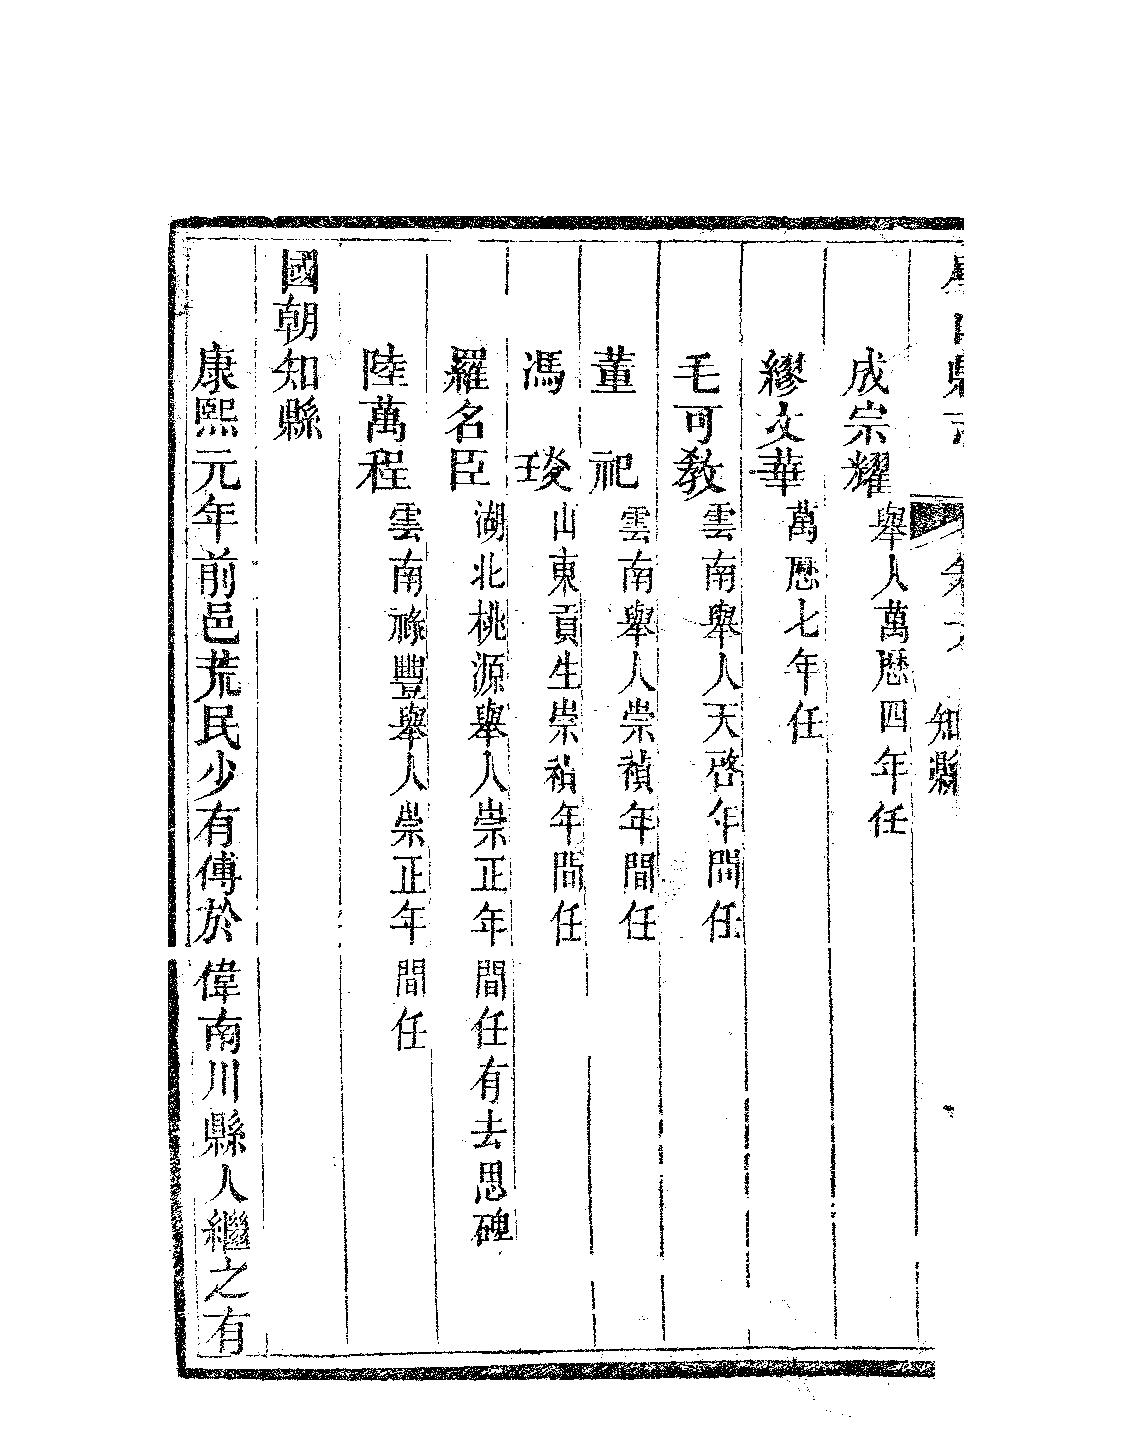 知縣
成宗耀舉人萬厯四年任
繆文華萬厯七年任
毛可教雲南舉人天啓年間任
董祀雲南舉人崇禎年間任
馮琰山東貢生崇禎年間任
羅名臣湖北桃源舉人崇正年間任有去思碑
陸萬程雲南祿豐舉人崇正年間任
國朝知縣
康熙元年前邑荒民少有傅於偉南川縣人繼之有